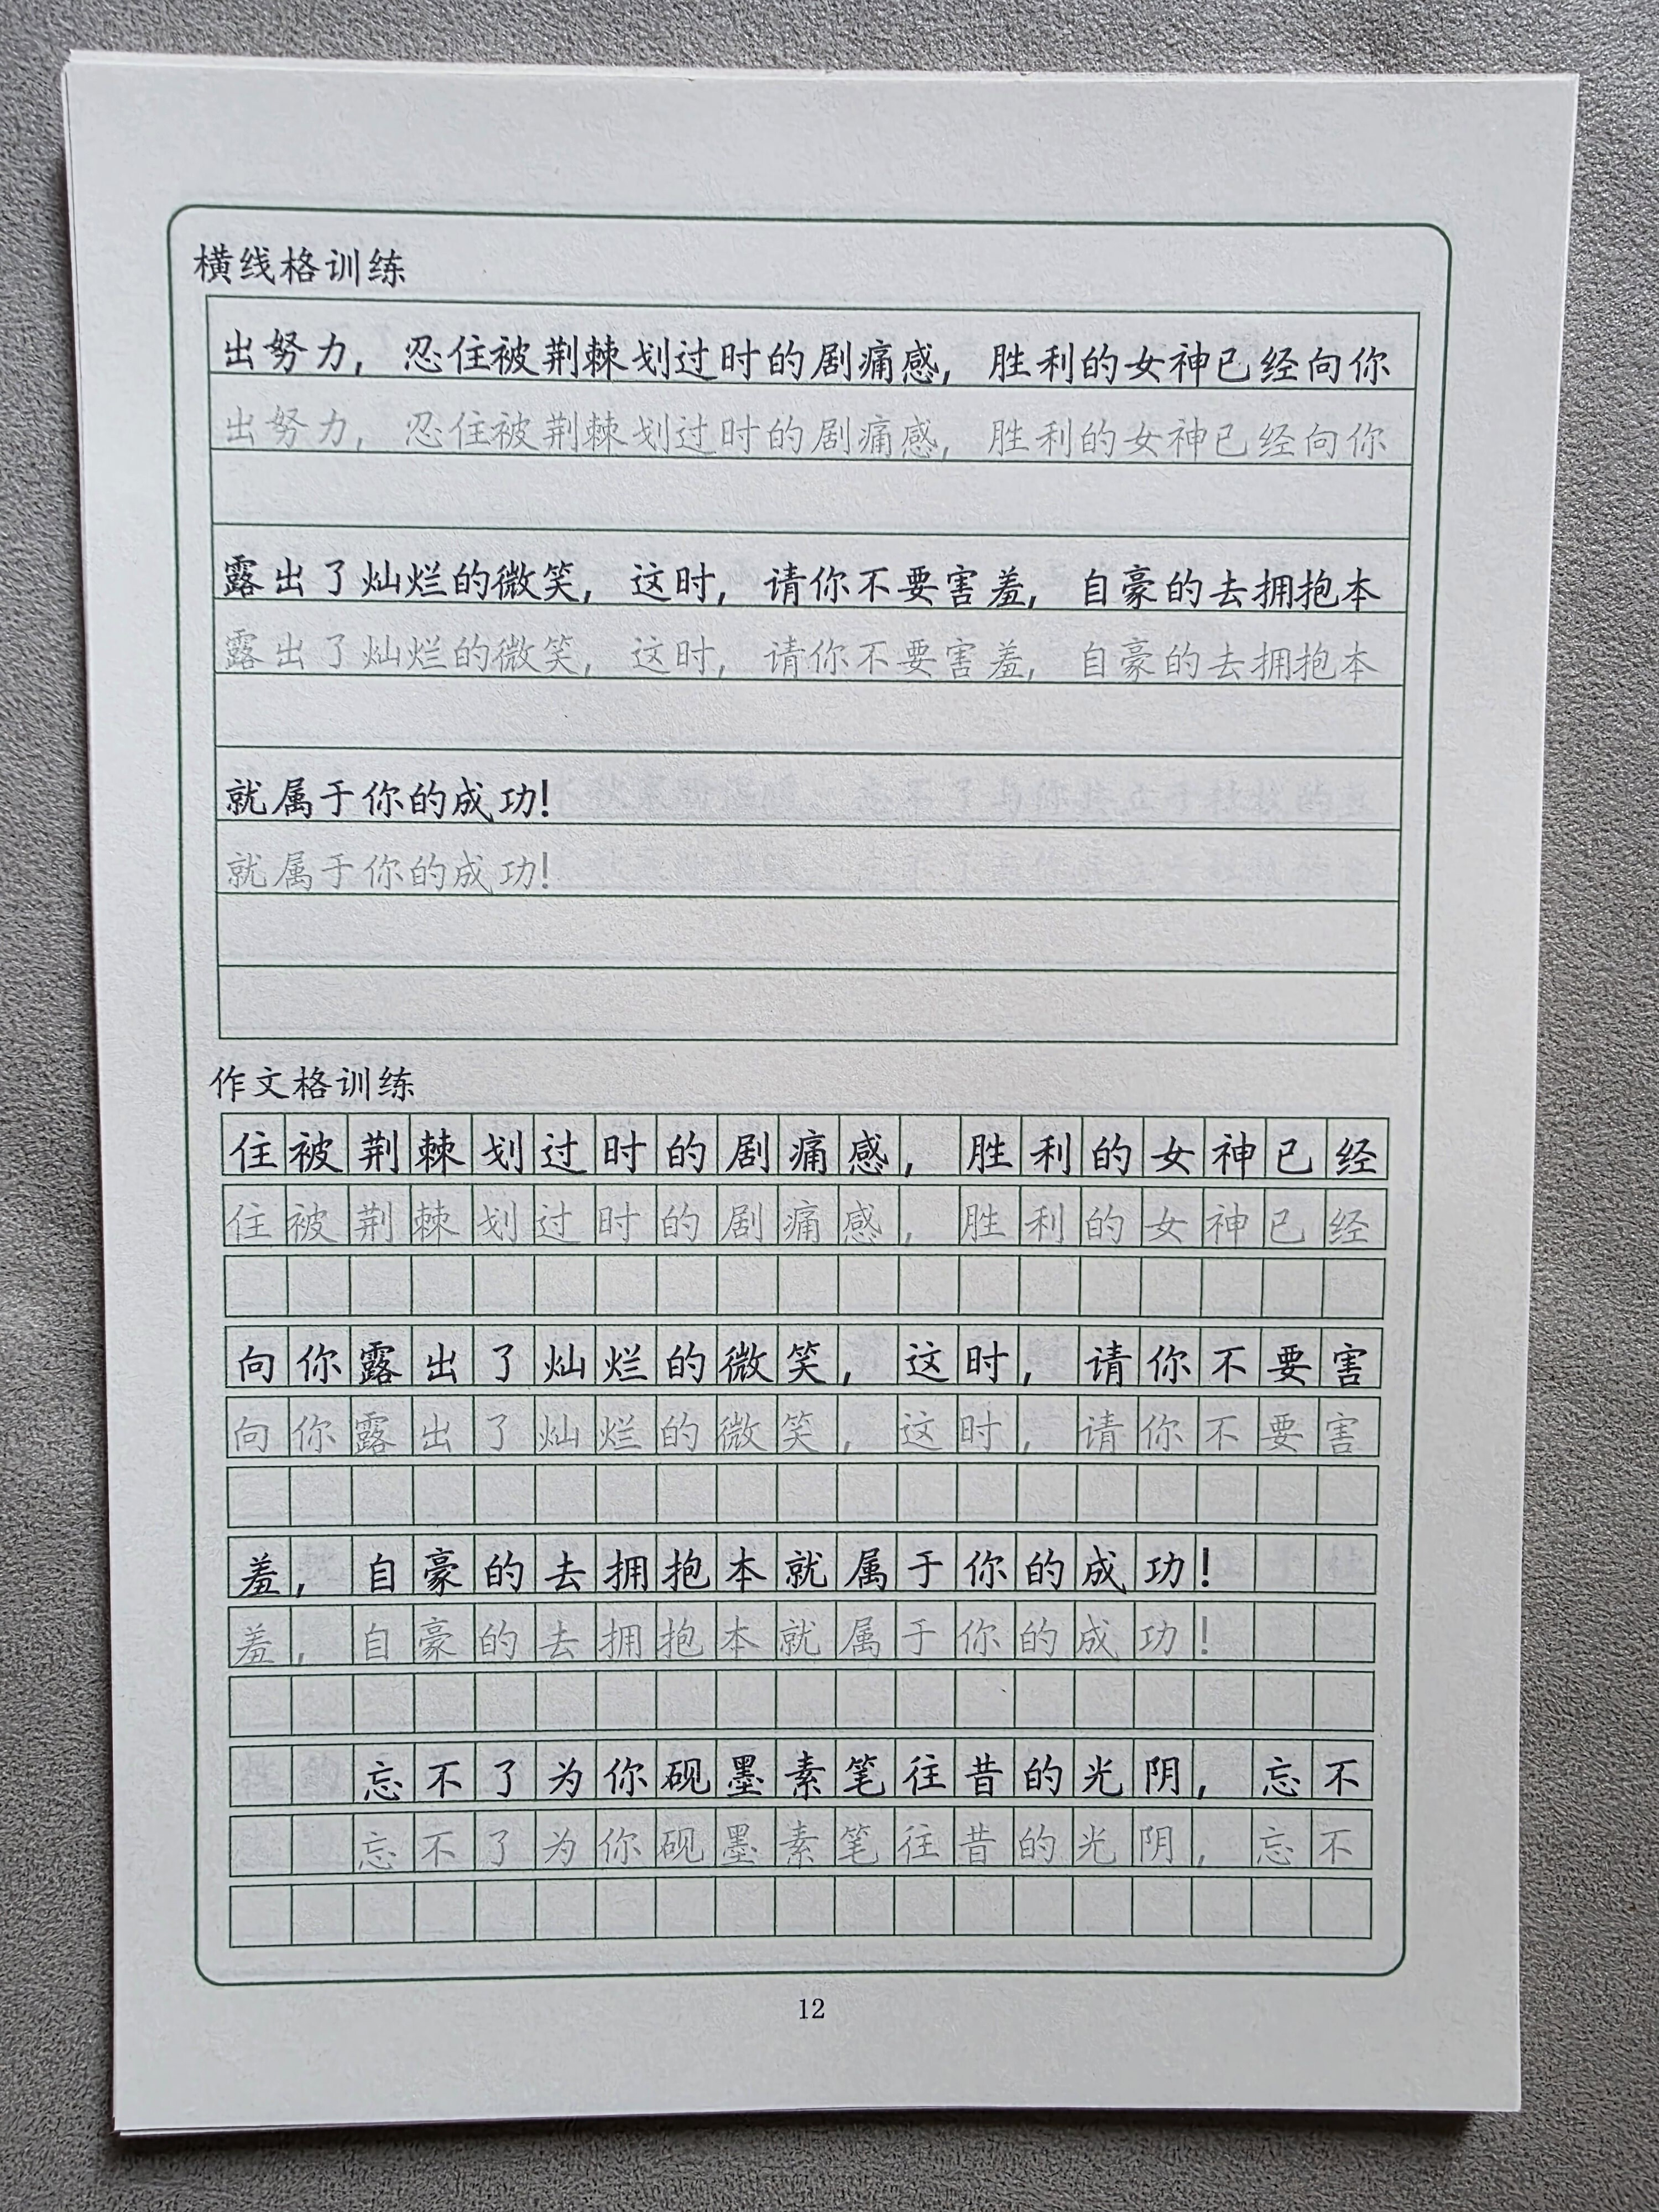 横线格训练
出努力，忍住被荆棘划过时的剧痛感，胜利的女神已经向你
出努力，忍住被荆棘划过时的剧痛感，胜利的女神已经向你
露出了灿烂的微笑，这时，请你不要害羞，自豪的去拥抱本
露出了灿烂的微笑，这时，请你不要害羞，自豪的去拥抱本
就属于你的成功！
就属于你的成功！
作文格训练
住被荆棘划过时的剧痛感，胜利的女神已经
住被荆棘划过时的剧痛感，胜利的女神已经
向你露出了灿烂的微笑，这时，请你不要害
向你露出了灿烂的微笑，这时，请你不要害
羞，自豪的去拥抱本就属于你的成功！
羞，自豪的去拥抱本就属于你的成功！
忘不了为你砚墨素笔往昔的光阴，忘不
忘不了为你砚墨素笔往昔的光阴，忘不
12